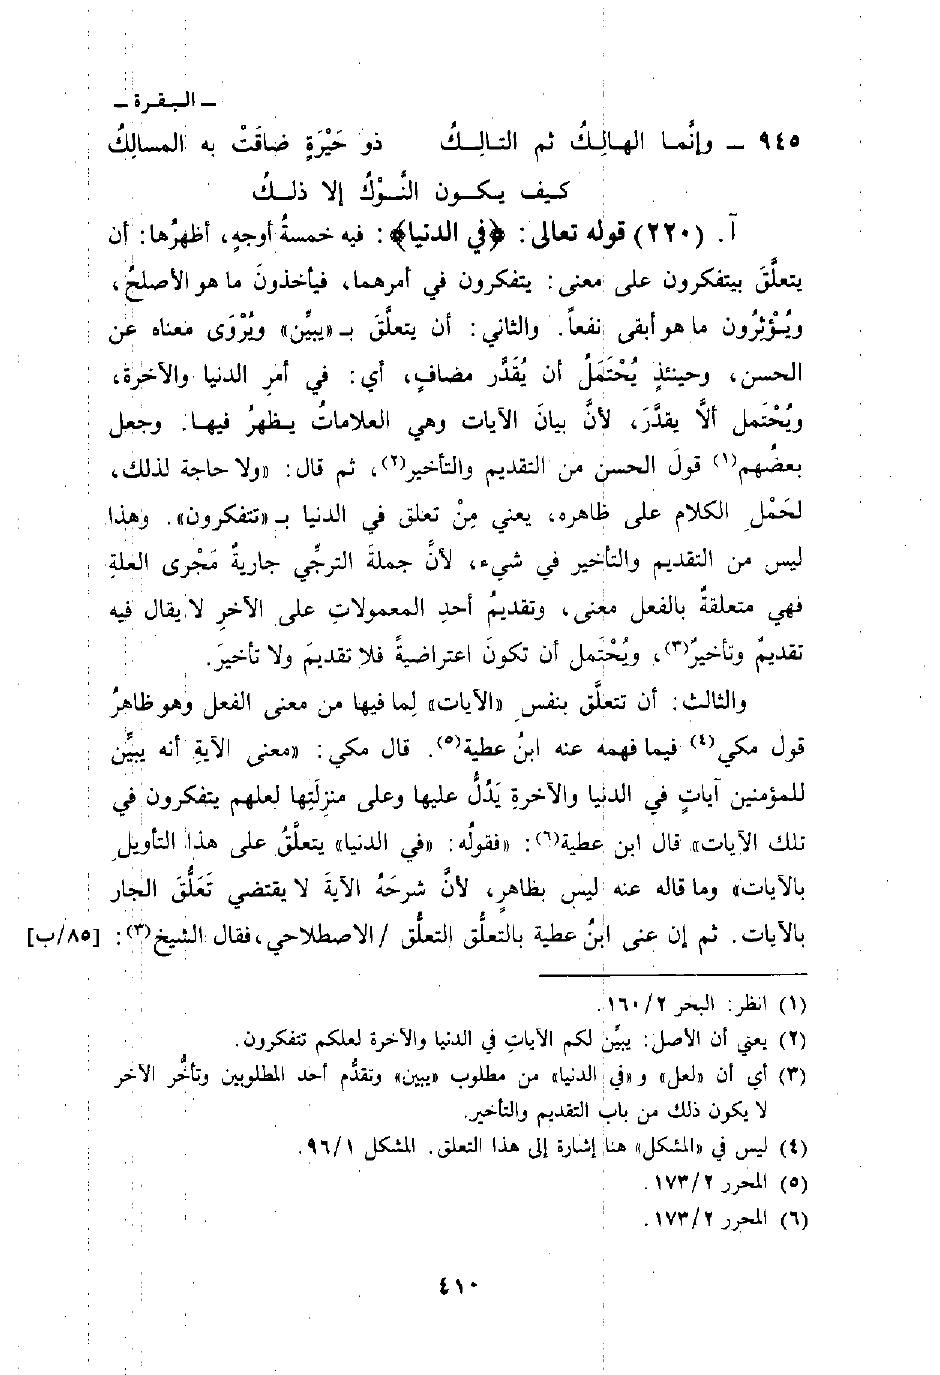 ـ البقرة ـ
٩٤٥ ـ وإنَّما الهالِكُ ثم التالِكُ ذو حَيْرَةٍ ضاقَتْ به المسالِكُ
كيف يكون النَّوْكُ إلا ذلكُ
آ. (٢٢٠) قوله تعالى: ﴿في الدنيا﴾: فيه خمسةُ أوجهٍ، أظهرُها: أن
يتعلَّقَ بيتفكرون على معنى: يتفكرون في أمرهما، فيأخذونَ ما هو الأصلحُ،
ويُؤْثِرُون ما هو أبقى نفعاً. والثاني: أن يتعلَّقَ بـ «يبيِّن» ويُرْوَى معناه عن
الحسن، وحينئذٍ يُحْتَمَلُ أن يُقَدَّر مضافٍ، أي: في أمرِ الدنيا والآخرة،
ويُحْتمل ألاَّ يقدَّرَ، لأنَّ بيانَ الآيات وهي العلاماتُ يظهرُ فيها. وجعل
بعضُهم(١) قولَ الحسن من التقديم والتأخير(٢)، ثم قال: «ولا حاجة لذلك،
لحَمْلِ الكلام على ظاهره، يعني مِنْ تعلق في الدنيا بـ «تتفكرون». وهذا
ليس من التقديم والتأخير في شيء، لأنَّ جملةَ الترجِّي جاريةٌ مَجْرى العلةِ
فهي متعلقةٌ بالفعل معنى، وتقديمُ أحدِ المعمولاتِ على الآخرِ لا يقال فيه
تقديمٌ وتأخيرٌ(٣)، ويُحْتمل أن تكونَ اعتراضيةً فلا تقديمَ ولا تأخيرَ.
والثالث: أن تتعلَّق بنفسِ «الآيات» لِما فيها من معنى الفعل وهو ظاهرُ
قول مكي(٤) فيما فهمه عنه ابنُ عطية(٥). قال مكي: «معنى الآيةِ أنه يبيِّن
للمؤمنين آياتٍ في الدنيا والآخرةِ يَدُلُّ عليها وعلى منزلَتِها لعلهم يتفكرون في
تلك الآيات» قال ابن عطية(٦): «فقولُه: «في الدنيا» يتعلَّقُ على هذا التأويلِ
بالآيات» وما قاله عنه ليس بظاهرٍ، لأنَّ شرحَهُ الآيةَ لا يقتضي تَعَلُّقَ الجار
بالآيات. ثم إن عنى ابنُ عطية بالتعلُّق التعلُّق /الاصطلاحي، فقال الشيخ(٣): [٨٥/ب]
(١) انظر: البحر ٢/١٦٠.
(٢) يعني أن الأصل: يبيِّن لكم الآياتِ في الدنيا والآخرة لعلكم تتفكرون.
(٣) أي أن «لعل» و «في الدنيا» من مطلوب «يبين» وتقدُّم أحد المطلوبين وتأخُّر الآخر
لا يكون ذلك من باب التقديم والتأخير.
(٤) ليس في «المشكل» هنا إشارة إلى هذا التعلق. المشكل ١/٩٦.
(٥) المحرر ٢/١٧٣.
(٦) المحرر ٢/١٧٣.
٤١٠